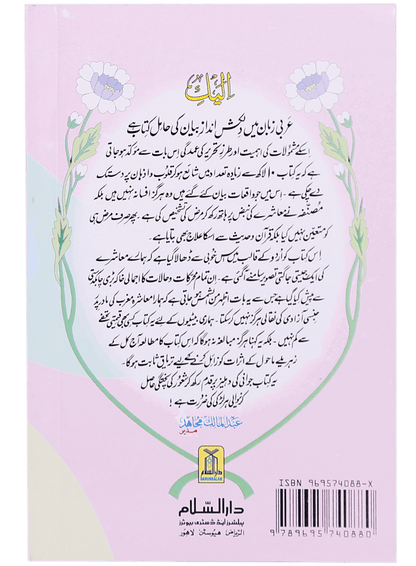 الیکِ
عربی زبان میں دلکش انداز بیان کی حامل کتاب ہے
اسکے مشمولات کی اہمیت اور طرز تحریر کی عمدگی اس بات سے مؤکد ہو جاتی
ہے کہ یہ کتاب ۱۰ لاکھ سے زیادہ تعداد میں شائع ہو کر قلوب و اذہان پر دستک
دے چکی ہے۔ اس میں جو واقعات بیان کئے گئے ہیں وہ ہرگز افسانہ نہیں ہیں بلکہ
مصنفہ نے معاشرے کی نبض پر ہاتھ رکھ کر مرض کی تشخیص کی ہے۔ پھر صرف مرض ہی
کو متعین نہیں کیا بلکہ قرآن و حدیث سے اسکا علاج بھی بتایا ہے۔
اس کتاب کو اردو کے قالب میں اس خوبی سے ڈھالا گیا ہے کہ ہمارے معاشرے
کی ایک جیتی جاگتی تصویر سامنے آ گئی ہے۔ ان تمام محرکات و حالات کا اجمالی خاکہ بڑی چابکدستی
سے پیش کیا گیا ہے جس سے یہ بات اظہر من الشمس ہو جاتی ہے کہ ہمارا معاشرہ مغرب کی مادر پدر
جنسی آزادی کی نقالی ہرگز نہیں کر سکتا۔ ہماری بیٹیوں کے لئے یہ کتاب کسی بھی قیمتی تحفے
سے کم نہیں۔ بلکہ یہ کہنا ہرگز مبالغہ نہ ہوگا کہ اس کتاب کا مطالعہ آج کل کے
زہریلے ماحول کے اثرات کو زائل کرنے کیلئے تریاق ثابت ہوگا۔
یہ کتاب جوانی کی دہلیز پر قدم رکھ کر شعور کی پختگی حاصل
کرنیوالی ہر لڑکی کی ضرورت ہے!
عبدالمالک مجاہد
مدیر
DARUSSALAM
دارالسلام
پبلشرز اینڈ ڈسٹری بیوٹرز
الریاض ہیوسٹن لاہور
ISBN 969574088-X
9 789695 740880